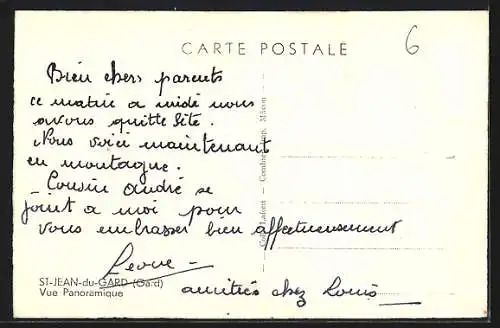 CARTE POSTALE
6
Bien chers parents
ce matin a midi nous
avons quitté Sète.
Nous voici maintenant
en montagne.
Cousin André se
joint a moi pour
vous embrasser bien affectueusement
amitiés chez Louis
ST-JEAN-du-GARD (Gard)
Vue Panoramique